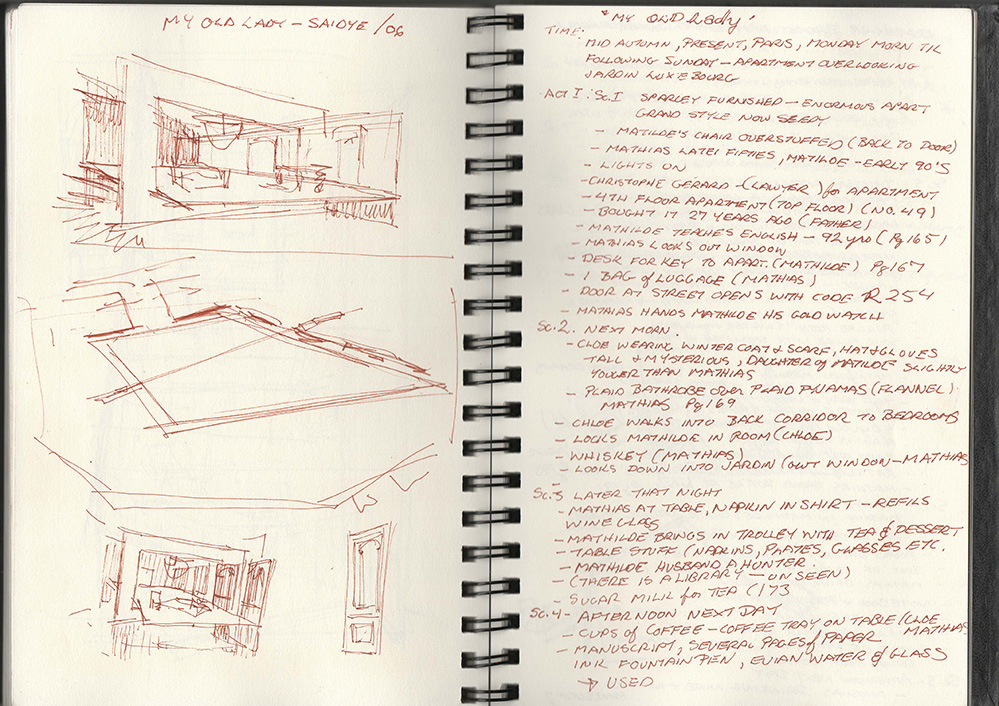 MY OLD LADY - SAIDYE /06
"MY OLD Lady"
TIME:
MID AUTUMN, PRESENT, PARIS, MONDAY MORN TIL
FOLLOWING SUNDAY - APARTMENT OVERLOOKING
JARDIN LUXEBOURG
ACT I: Sc.I SPARLEY FURNISHED - ENORMOUS APART
GRAND STYLE NOW SEEDY
- MATILDE'S CHAIR OVERSTUFFED (BACK TO DOOR)
- MATHIAS LATE FIFTIES, MATILDE - EARLY 90'S
- LIGHTS ON
- CHRISTOPHE GERARD - (LAWYER) for APARTMENT
- 4TH FLOOR APARTMENT (TOP FLOOR) (NO. 49)
- BOUGHT IT 27 YEARS AGO (FATHER)
- MATHILDE TEACHES ENGLISH - 92 yrs (Pg 165)
- MATHIAS LOOKS OUT WINDOW
- DESK FOR KEY TO APART. (MATHILDE) Pg 167
- 1 BAG of LUGGAGE (MATHIAS)
- DOOR AT STREET OPENS WITH CODE R254
- MATHIAS HANDS MATHILDE HIS GOLD WATCH
Sc.2. NEXT MORN.
- CLOE WEARING WINTER COAT & SCARF, HAT & GLOVES
TALL & MYSTERIOUS, DAUGHTER of MATILDE SLIGHTLY
YOUGER THAN MATHIAS
- PLAID BATHROBE over PLAID PYJAMAS (FLANNEL)
MATHIAS Pg 169
- CHLOE WALKS INTO BACK CORRIDOR TO BEDROOMS
- LOCKS MATHILDE IN ROOM (CHLOE)
- WHISKEY (MATHIAS)
- LOOKS DOWN INTO JARDIN (OUT WINDOW - MATHIAS
Sc.3 LATER THAT NIGHT
- MATHIAS AT TABLE, NAPKIN IN SHIRT - REFILS
WINE GLASS
- MATHILDE BRINGS IN TROLLEY WITH TEA & DESSERT
- TABLE STUFF (NAPKINS, PLATES, GLASSES ETC.
- MATHILDE HUSBAND A HUNTER.
- (THERE IS A LIBRARY - UNSEEN)
- SUGAR MILK for TEA (173
Sc.4 - AFTERNOON NEXT DAY
- CUPS of COFFEE - COFFEE TRAY ON TABLE/CLOE MATHIAS
- MANUSCRIPT, SEVERAL PAGES of PAPER
INK FOUNTAIN PEN, EVIAN WATER & GLASS
→ USED